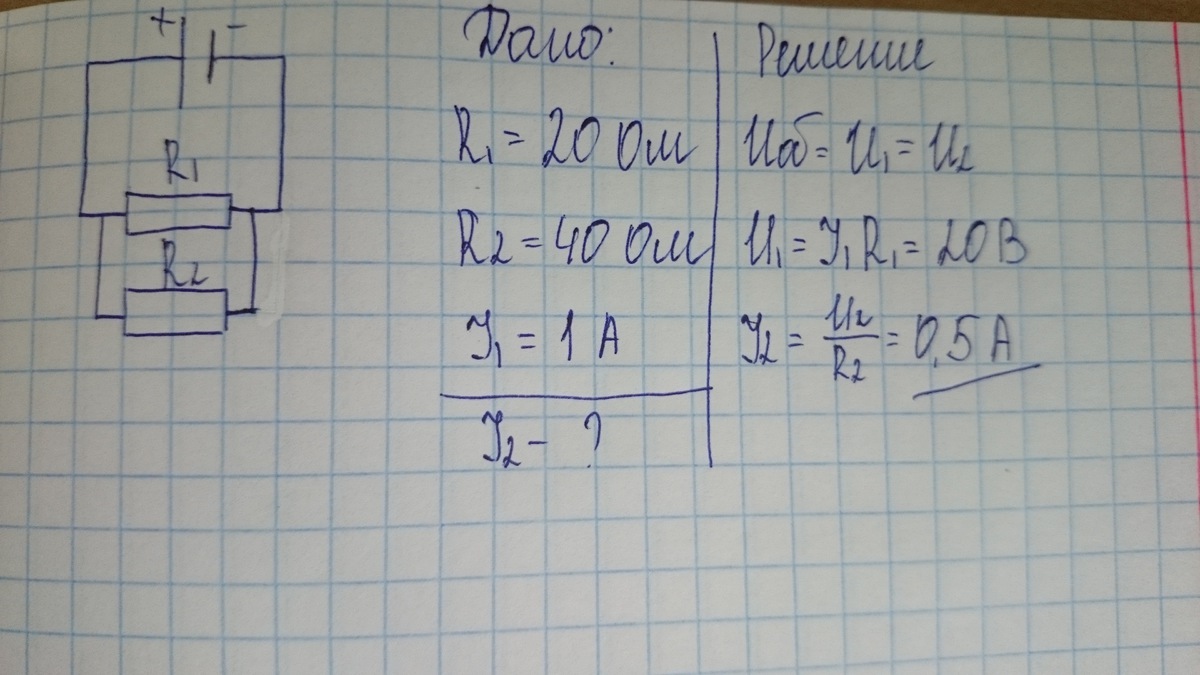 + -
R₁
R₂
Дано:
R₁ = 20 Ом
R₂ = 40 Ом
I₁ = 1 А
I₂ - ?
Решение
Uоб = U₁ = U₂
U₁ = I₁ R₁ = 20 В
I₂ = U₂/R₂ = 0,5 А